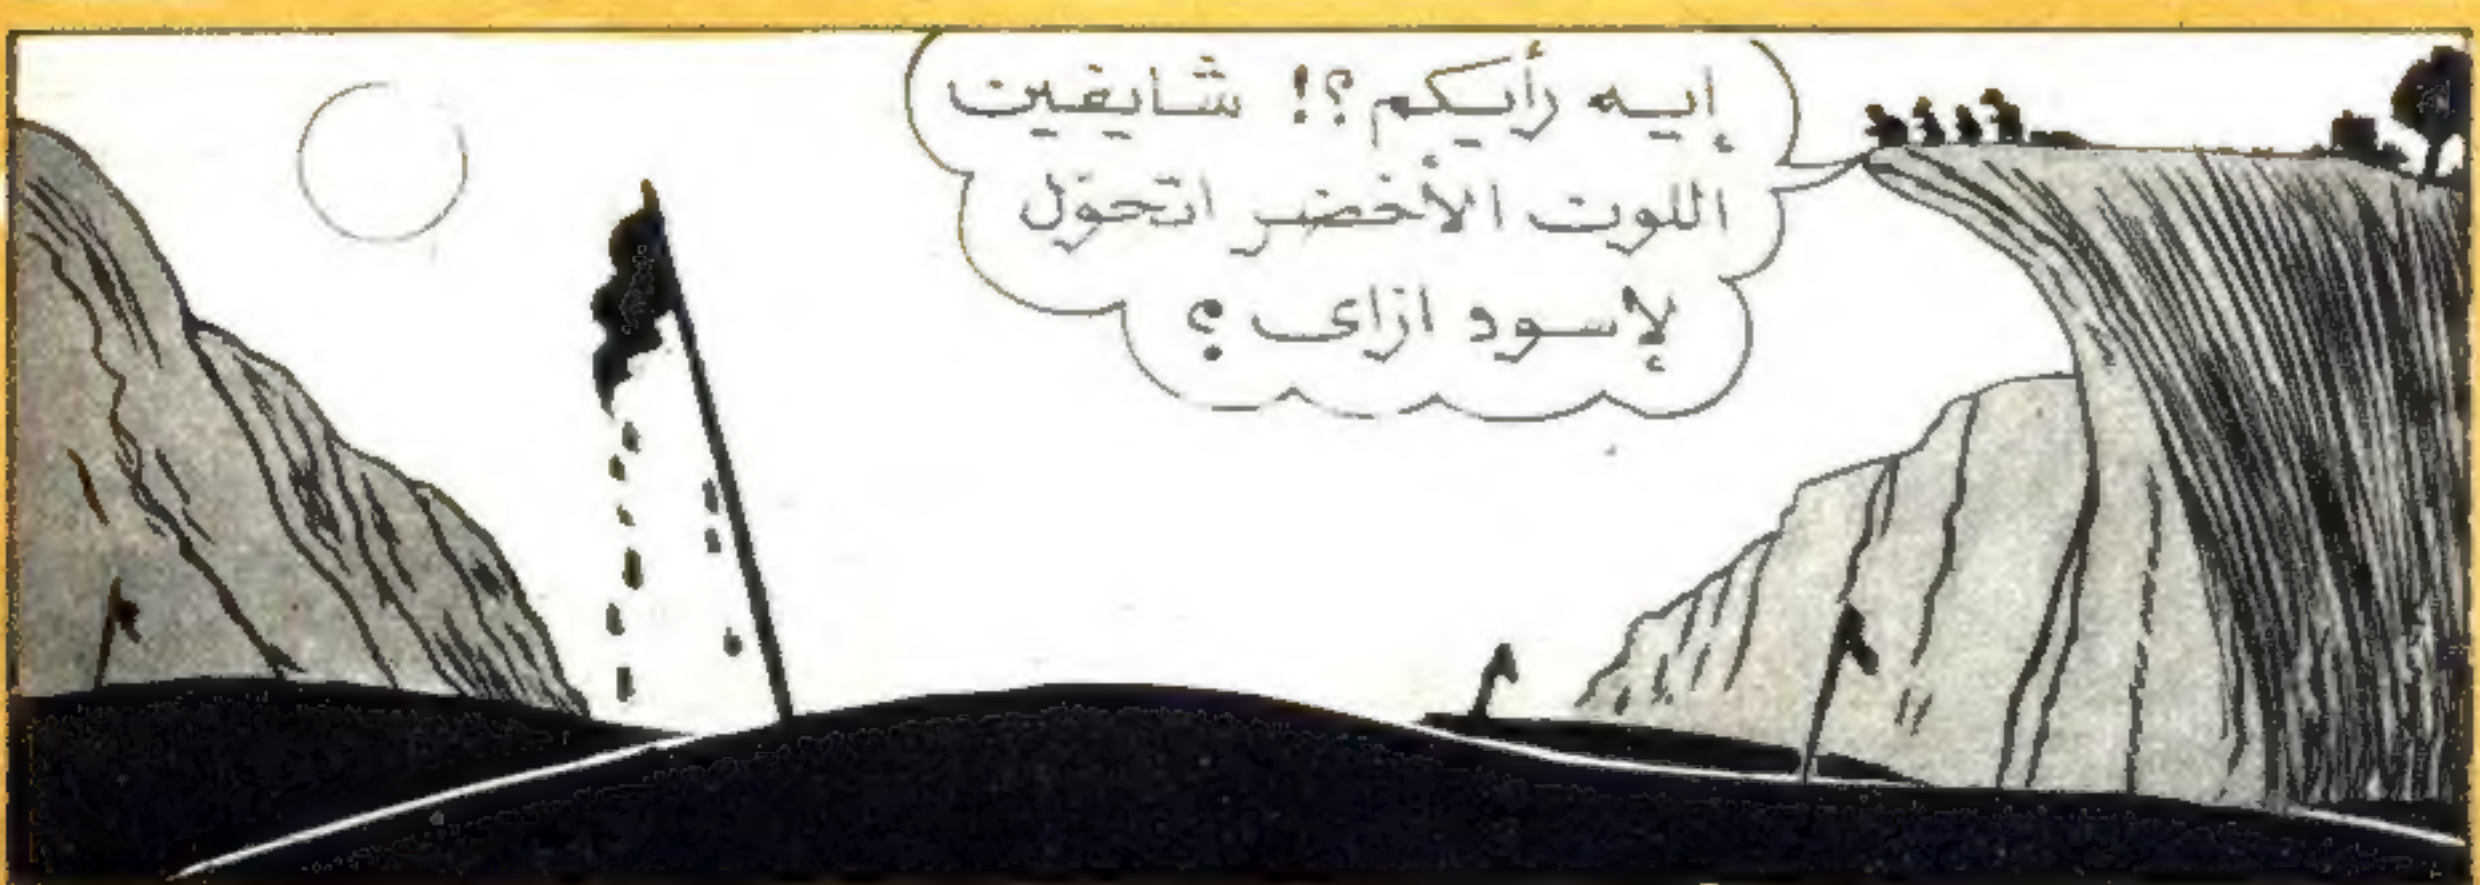 إيه رأيكم ؟! شايفين
اللون الأخضر اتحوّل
لإسود ازاى ؟